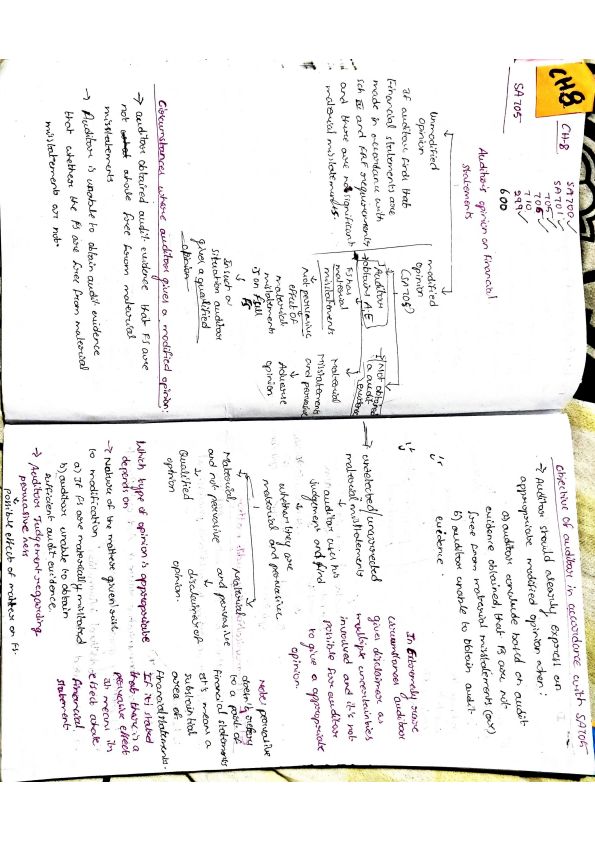 CH8
CH-8
SA 700
SA 701
705
706
710
299
600
SA 705
Auditor's opinion on Financial
statements
Unmodified
opinion
If auditor finds that
Financial statements are
made in accordance with
Sch III and FRF requirements
and there are no significant
material misstatements
modified
opinion
(SA 705)
Auditor
obtains A.E
FS has
material
misstatements
Not pervasive
effect of
material
misstatements
is on full
FS
In such a
situation auditor
gives a qualified
opinion
Not obtained
a audit
evidence
Material
Misstatements
and pervasive
Adverse
opinion
Circumstances where auditor gives a modified opinion:
→ auditor obtained audit evidence that FS are
not whole free from material
misstatements
→ Auditor is unable to obtain audit evidence
that whether the FS are free from material
misstatements or not
Objective of auditor in accordance with SA 705
→ Auditor should clearly express an
appropriate modified opinion when:
a) auditor conclude based on audit
evidence obtained, that FS are not
free from material misstatements (or)
b) auditor unable to obtain audit
evidence.
→ undetected/uncorrected
material misstatements
auditor uses his
judgement and find
whether they are
material and pervasive
Material
and not pervasive
Qualified
opinion
Material
and pervasive
disclaimer of
opinion.
In Extremely rare
circumstances auditor
gives disclaimer as
multiple uncertainties
involved and it's not
possible for auditor
to give a appropriate
opinion.
Which type of opinion is appropriate
depends on
→ Nature of the matter given rise
to modification
a) If FS are materially misstated
b) auditor unable to obtain
sufficient audit evidence.
→ Auditor Judgement regarding
pervasiveness
possible effect of matter on FS.
Note: pervasive
to a part of
financial statements
it's means a
substantial
area of
financial statements.
If it is stated
that there is a
pervasive effect
it means its
effect whole
financial
statement